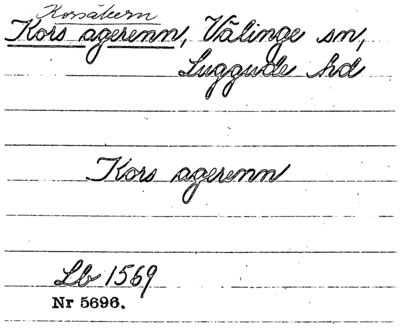 Korsåkern
Kors agerenn, Välinge sn,
Luggude hd
Kors agerenn
Lb 1569
Nr 5696.